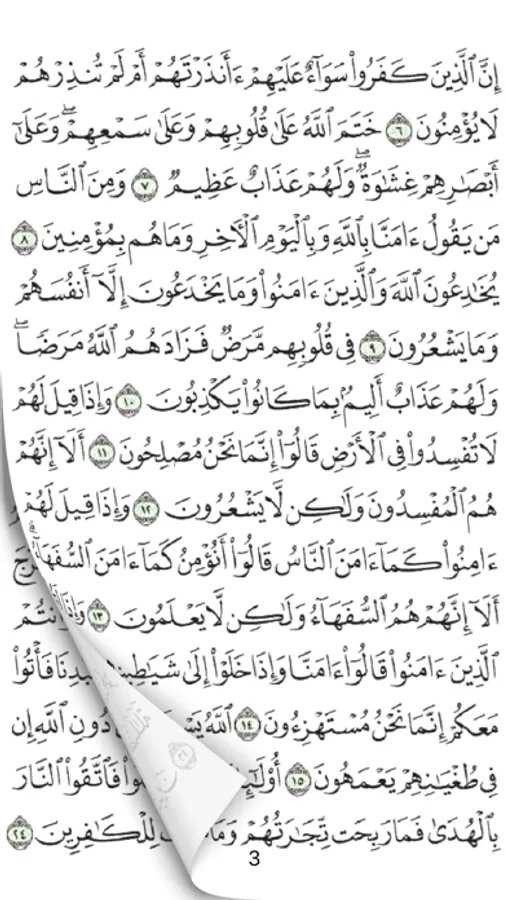 إِنَّ ٱلَّذِينَ كَفَرُوا۟ سَوَآءٌ عَلَيْهِمْ ءَأَنذَرْتَهُمْ أَمْ لَمْ تُنذِرْهُمْ
لَا يُؤْمِنُونَ ٦ خَتَمَ ٱللَّهُ عَلَىٰ قُلُوبِهِمْ وَعَلَىٰ سَمْعِهِمْ ۖ وَعَلَىٰٓ
أَبْصَٰرِهِمْ غِشَٰوَةٌ ۖ وَلَهُمْ عَذَابٌ عَظِيمٌ ٧ وَمِنَ ٱلنَّاسِ
مَن يَقُولُ ءَامَنَّا بِٱللَّهِ وَبِٱلْيَوْمِ ٱلْءَاخِرِ وَمَا هُم بِمُؤْمِنِينَ ٨
يُخَٰدِعُونَ ٱللَّهَ وَٱلَّذِينَ ءَامَنُوا۟ وَمَا يَخْدَعُونَ إِلَّآ أَنفُسَهُمْ
وَمَا يَشْعُرُونَ ٩ فِى قُلُوبِهِم مَّرَضٌ فَزَادَهُمُ ٱللَّهُ مَرَضًا ۖ
وَلَهُمْ عَذَابٌ أَلِيمٌۢ بِمَا كَانُوا۟ يَكْذِبُونَ ١٠ وَإِذَا قِيلَ لَهُمْ
لَا تُفْسِدُوا۟ فِى ٱلْأَرْضِ قَالُوٓا۟ إِنَّمَا نَحْنُ مُصْلِحُونَ ١١ أَلَآ إِنَّهُمْ
هُمُ ٱلْمُفْسِدُونَ وَلَٰكِن لَّا يَشْعُرُونَ ١٢ وَإِذَا قِيلَ لَهُمْ
ءَامِنُوا۟ كَمَآ ءَامَنَ ٱلنَّاسُ قَالُوٓا۟ أَنُؤْمِنُ كَمَآ ءَامَنَ
أَلَآ إِنَّهُمْ هُمُ ٱلسُّفَهَآءُ وَلَٰكِن لَّا يَعْلَمُونَ ١٣
ٱلَّذِينَ ءَامَنُوا۟ قَالُوٓا۟ ءَامَنَّا وَإِذَا خَلَوْا۟ إِلَىٰ فَأْتُوا۟
مَعَكُمْ إِنَّمَا نَحْنُ مُسْتَهْزِءُونَ ١٤ ٱللَّهُ دُونِ ٱللَّهِ إِن
فِى طُغْيَٰنِهِمْ يَعْمَهُونَ ١٥ فَٱتَّقُوا۟ ٱلنَّارَ
بِٱلْهُدَىٰ فَمَا رَبِحَت تِّجَٰرَتُهُمْ لِلْكَٰفِرِينَ ٢٤
3